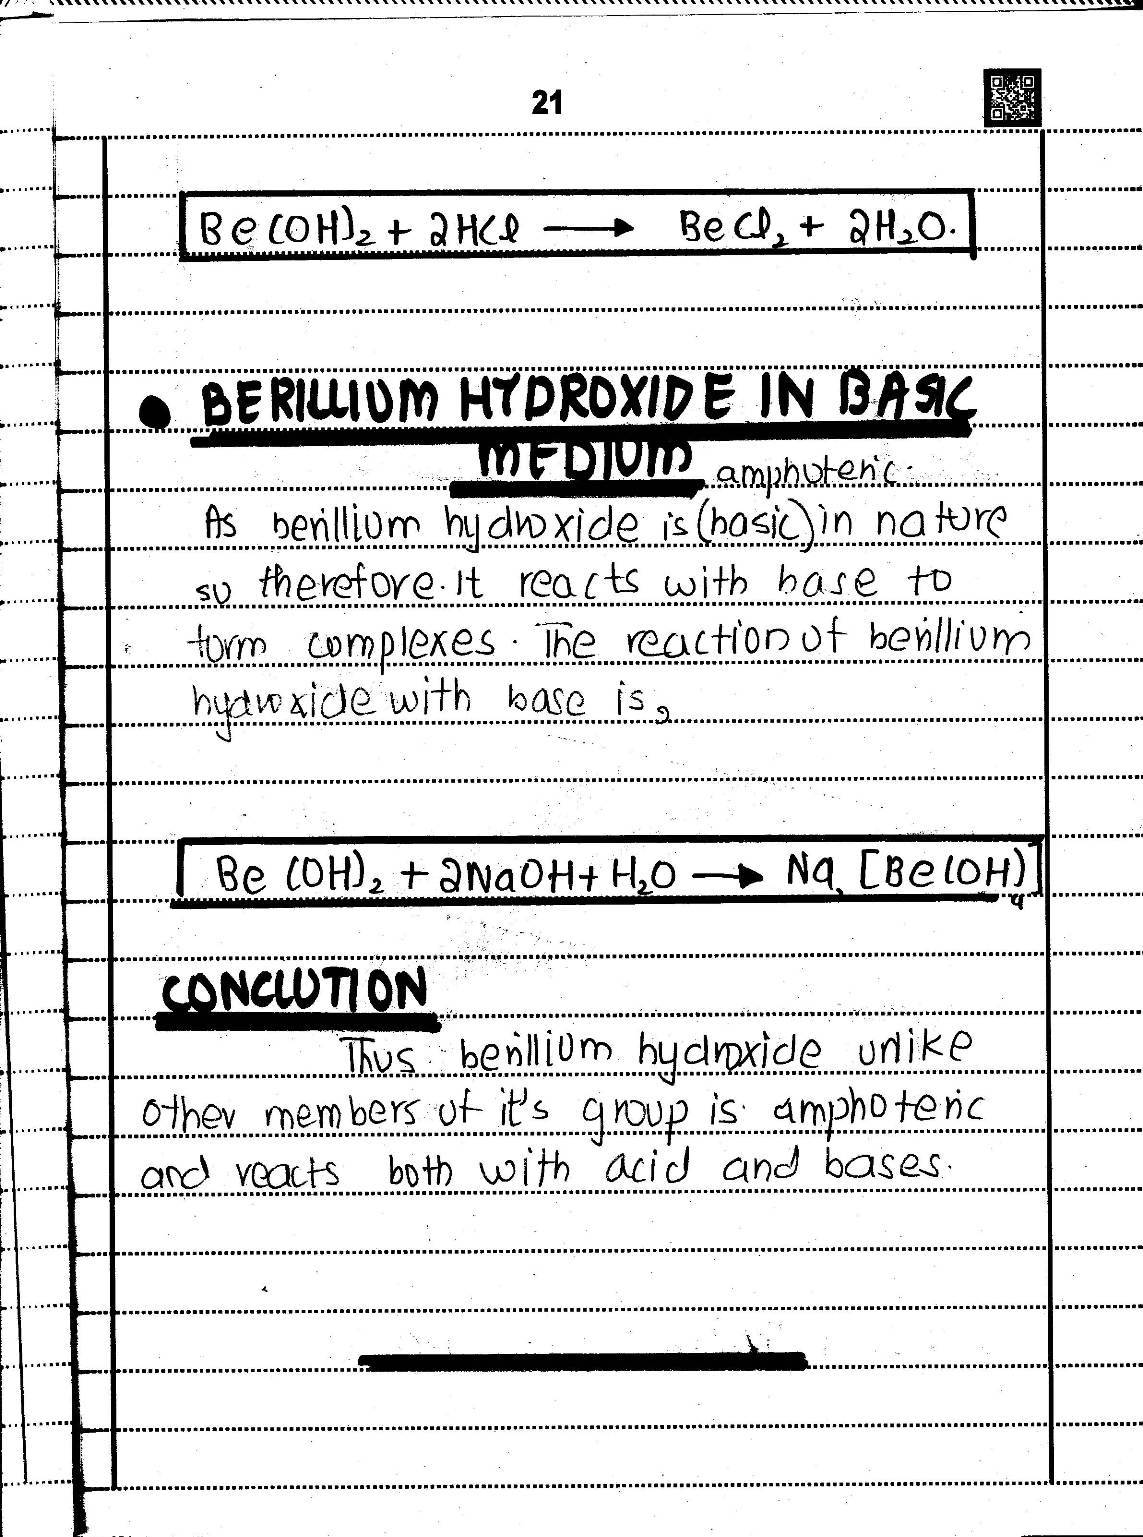 21
Be(OH)₂ + 2HCl ⟶ BeCl₂ + 2H₂O.
• BERILLIUM HYDROXIDE IN BASIC
MEDIUM amphoteric.
As berillium hydroxide is (basic) in nature
so therefore. It reacts with base to
form complexes. The reaction of berillium
hydroxide with base is,
Be(OH)₂ + 2NaOH + H₂O ⟶ Na₂[Be(OH)₄]
CONCLUTION
Thus berillium hydroxide unlike
other members of it's group is amphoteric
and reacts both with acid and bases.